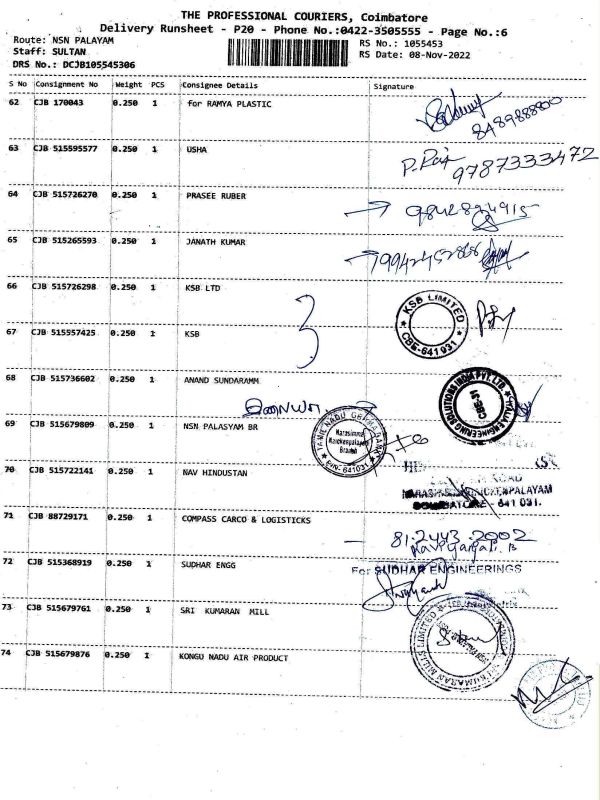 THE PROFESSIONAL COURIERS, Coimbatore
Delivery Runsheet - P20 - Phone No.:0422-3505555 - Page No.:6
Route: NSN PALAYAM
Staff: SULTAN
DRS No.: DCJB105545306
RS No.: 1055453
RS Date: 08-Nov-2022
S No Consignment No Weight PCS Consignee Details Signature
62 CJB 170043 0.250 1 for RAMYA PLASTIC
8489888800
63 CJB 515595577 0.250 1 USHA
9787333472
64 CJB 515726270 0.250 1 PRASEE RUBER
9842894915
65 CJB 515265593 0.250 1 JANATH KUMAR
66 CJB 515726298 0.250 1 KSB LTD
KSB LIMITED
CBE-641031
67 CJB 515557425 0.250 1 KSB
3
68 CJB 515736602 0.250 1 ANAND SUNDARAMM
69 CJB 515679809 0.250 1 NSN PALASYAM BR
Narasimma
Naickenpalayam
Branch
PIN- 641031
70 CJB 515722141 0.250 1 NAV HINDUSTAN
ROAD
COIMBATORE - 641 031.
71 CJB 88729171 0.250 1 COMPASS CARCO & LOGISTICKS
81:2443 2002
72 CJB 515368919 0.250 1 SUDHAR ENGG
For SUDHAR ENGINEERINGS
73 CJB 515679761 0.250 1 SRI KUMARAN MILL
74 CJB 515679876 0.250 1 KONGU NADU AIR PRODUCT